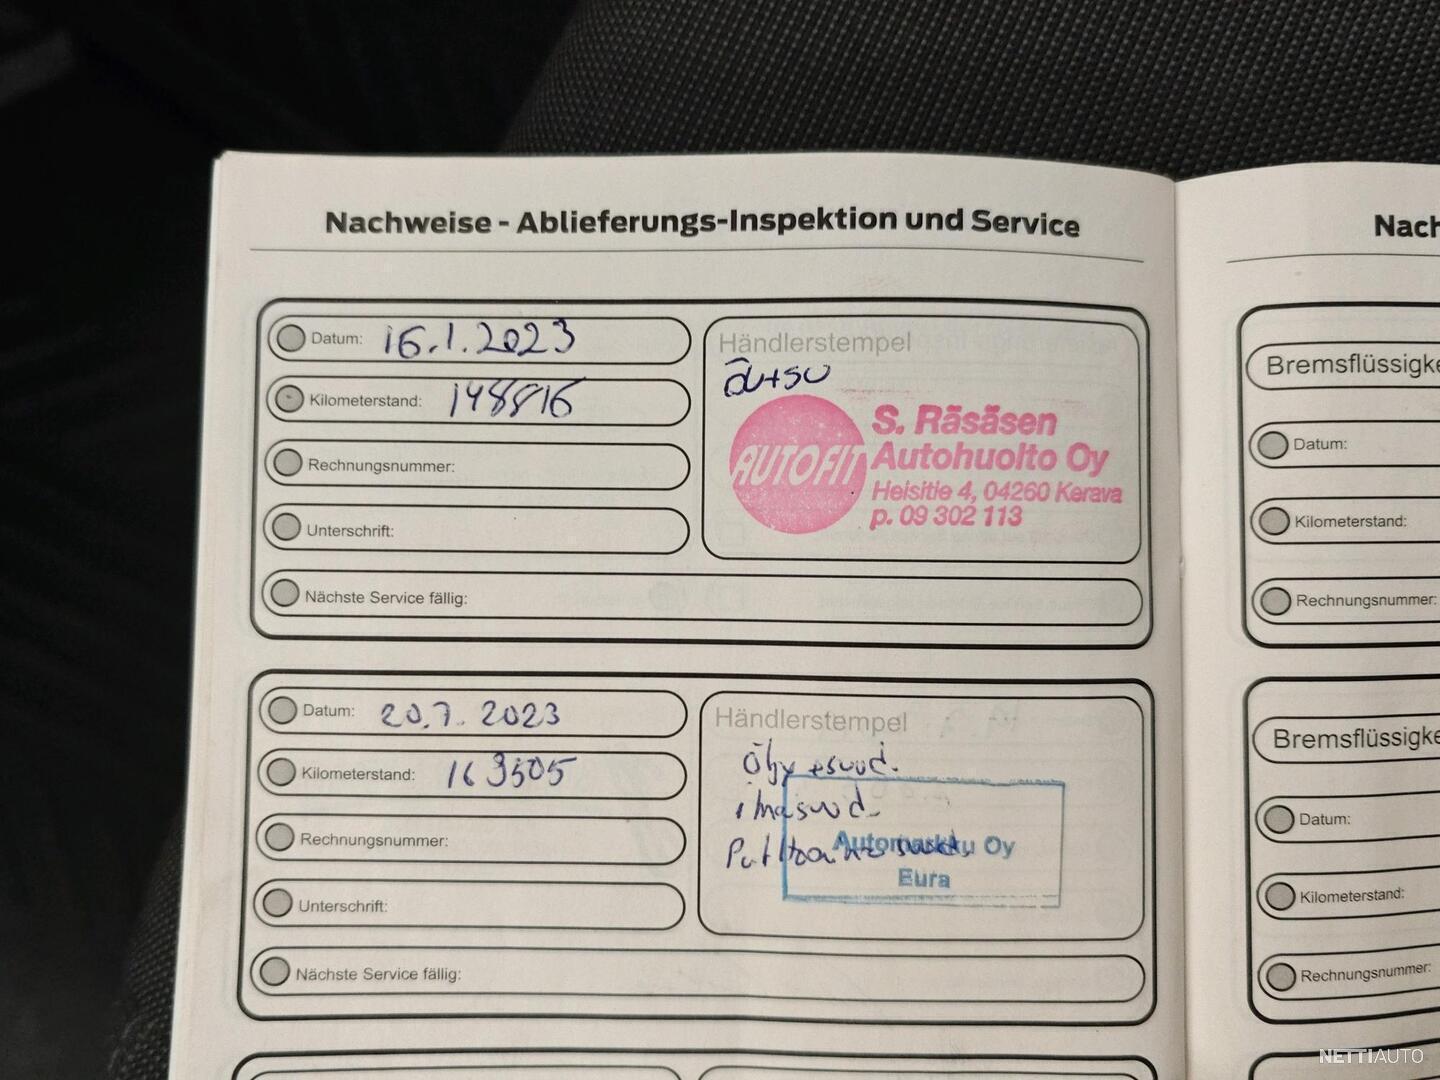 Nachweise - Ablieferungs-Inspektion und Service
Datum: 16.1.2023
Kilometerstand: 148816
Rechnungsnummer:
Unterschrift:
Nächste Service fällig:
Händlerstempel
AUTOFIT
S. Räsäsen
Autohuolto Oy
Heisitie 4, 04260 Kerava
p. 09 302 113
Datum: 20.7. 2023
Kilometerstand: 163505
Rechnungsnummer:
Unterschrift:
Nächste Service fällig:
Händlerstempel
Öljy + suod.
ilmasuod.
Automarkku Oy
Eura
Nach
Bremsflüssigke
Datum:
Kilometerstand:
Rechnungsnummer:
Bremsflüssigke
Datum:
Kilometerstand:
Rechnungsnummer:
NETTIAUTO